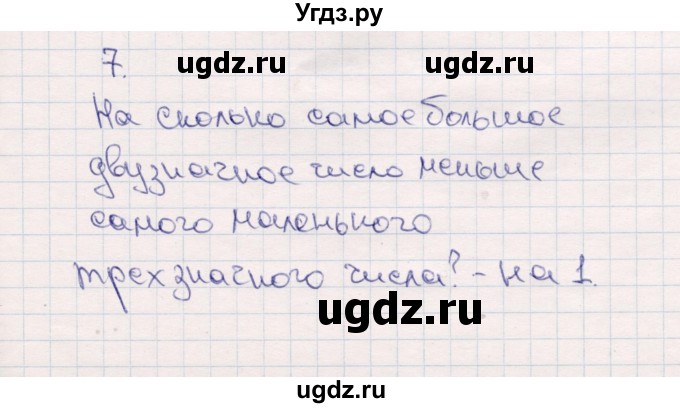 Угдз.ру
7.
ugdz.ru ugdz.ru
На сколько самое большое
двузначное число меньше
самого маленького
трехзначного числа? - на 1.
ugdz.ru
ugdz.ru